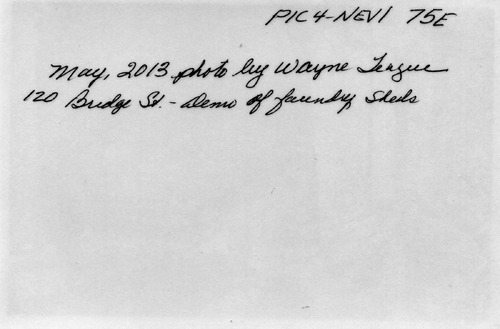 PIC4-NEV1 75E
May, 2013 photo by Wayne Teague
120 Bridge St. - Demo of foundry Sheds